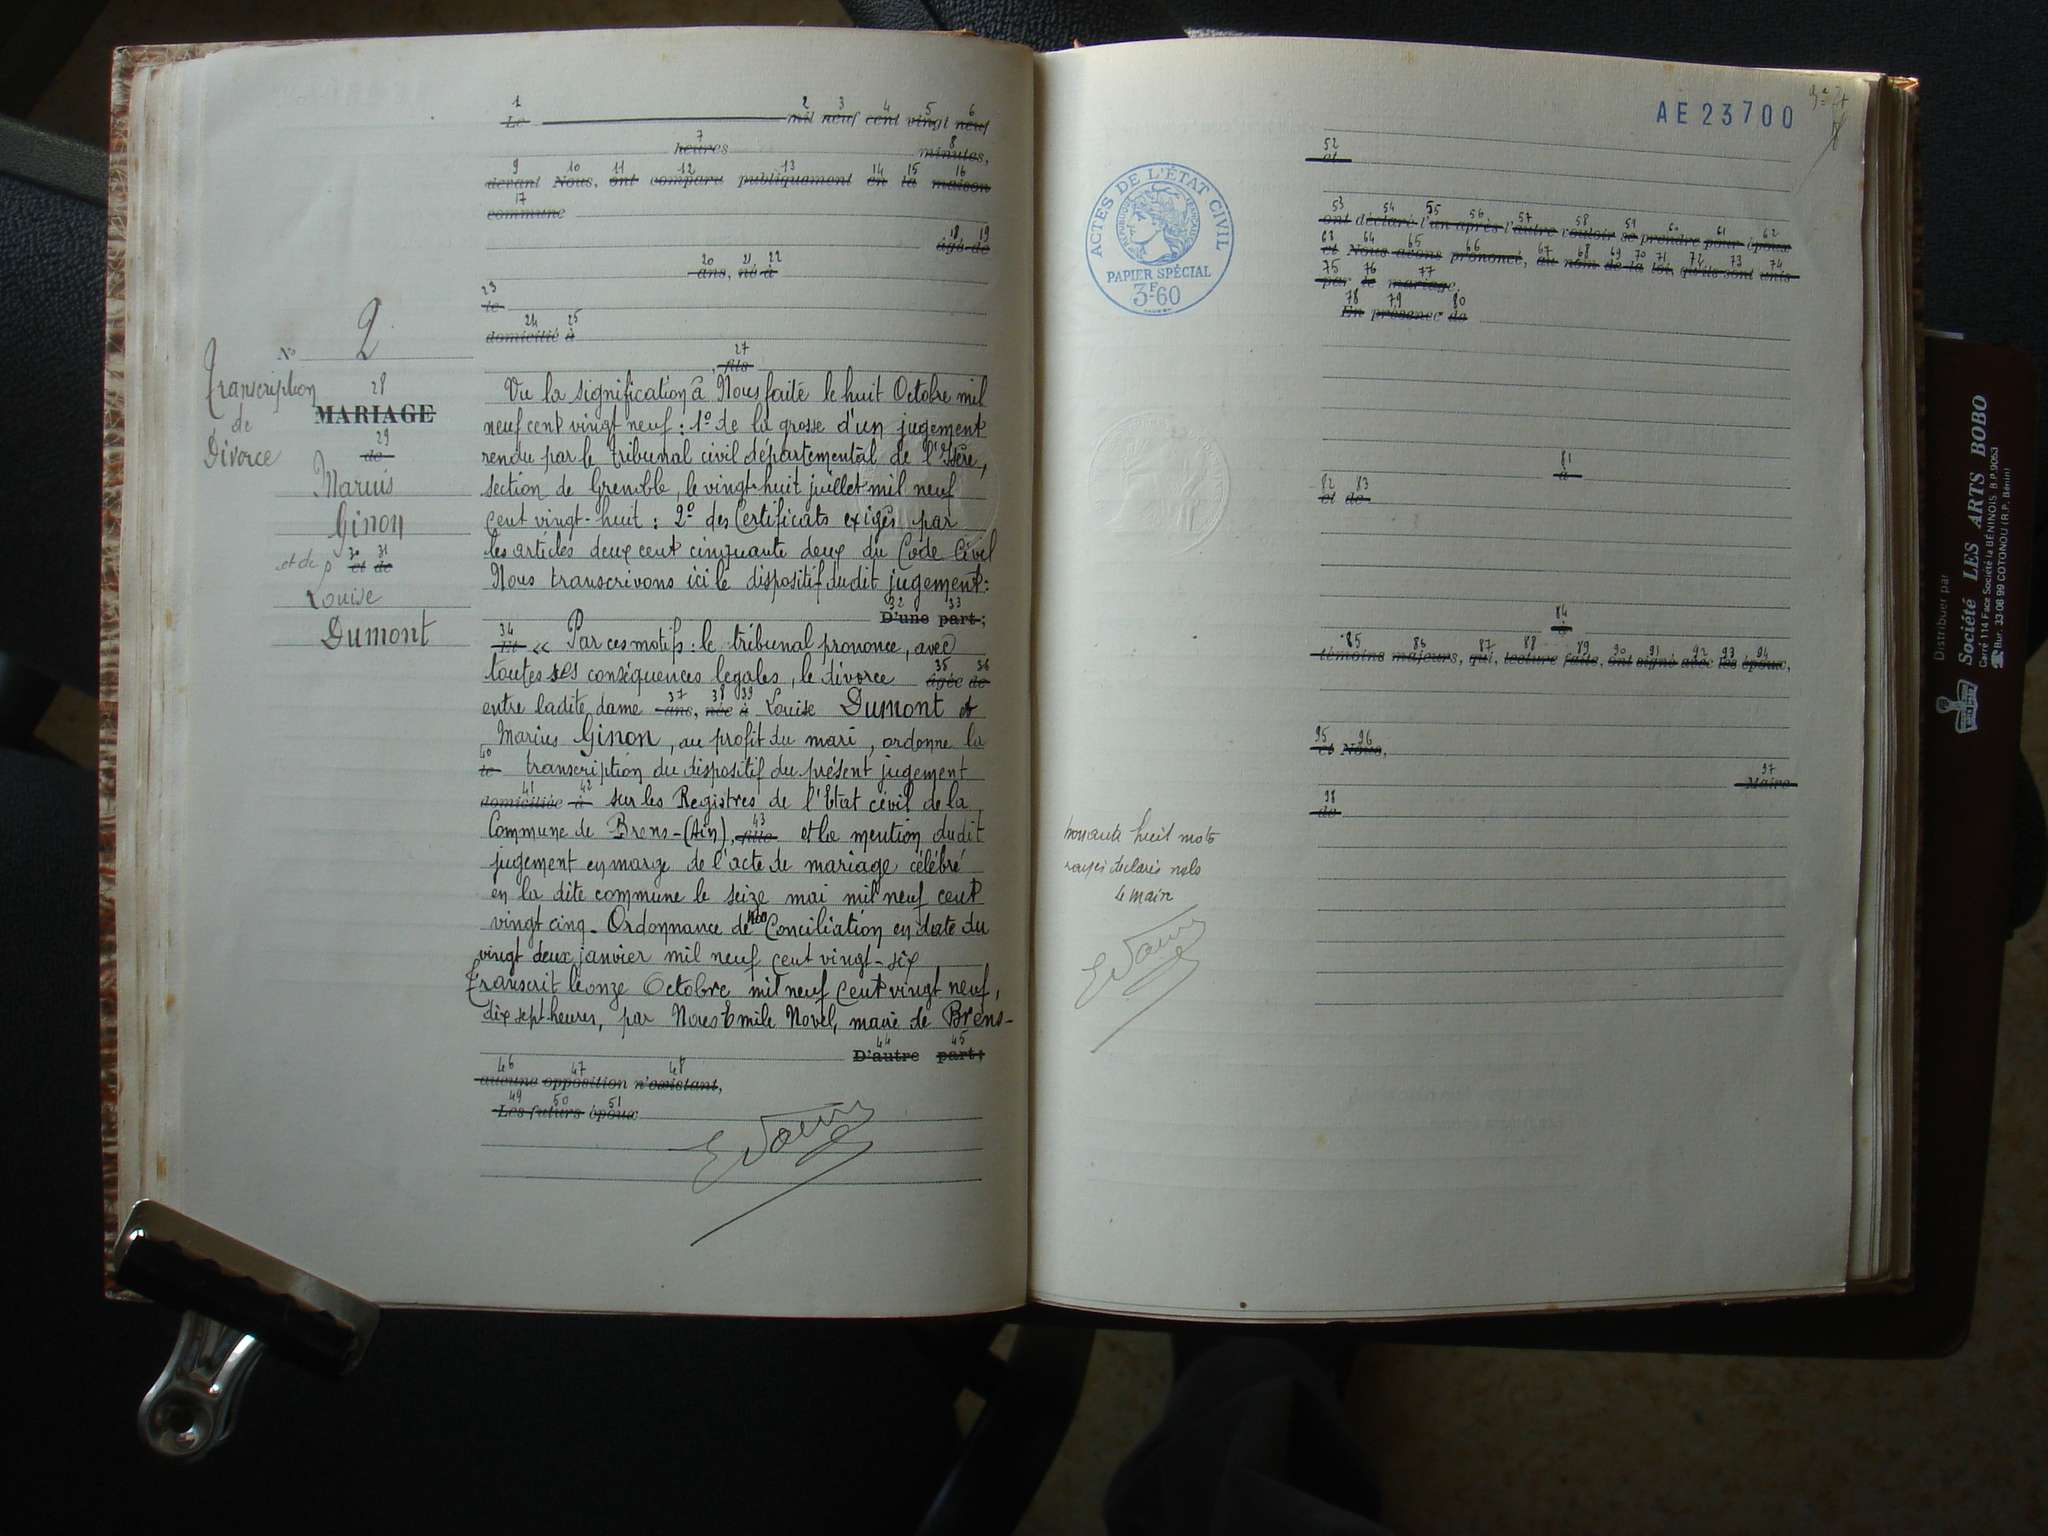 1 2 3 4 5 6
Le mil neuf cent vingt neuf
7 8
heures minutes,
9 10 11 12 13 14 15 16
devant Nous, ont comparu publiquement en la maison
17
commune
18 19
âgé de
20 21 22
ans, né à
23
le
24 25
domicilié à
27
, fils
N° 2
Transcription
de
Divorce
28
MARIAGE
29
de
Marius
Ginon
30 31
et de et de
Louise
Dumont
Vu la signification à Nous faite le huit Octobre mil
neuf cent vingt neuf : 1° de la grosse d'un jugement
rendu par le tribunal civil départemental de l'Isère,
section de Grenoble, le vingt-huit juillet mil neuf
cent vingt-huit : 2° des Certificats exigés par
les articles deux cent cinquante deux du Code Civil
Nous transcrivons ici le dispositif dudit jugement :
32 33
D'une part ;
34
Et « Par ces motifs : le tribunal prononce, avec
35 36
toutes ses conséquences legales, le divorce âgée de
37 38 39
entre ladite dame ans, née à Louise Dumont et
Marius Ginon, au profit du mari, ordonne la
40
le transcription du dispositif du présent jugement
41 42
domiciliée à sur les Registres de l'Etat civil de la
43
Commune de Brens-(Ain), fille et la mention dudit
jugement en marge de l'acte de mariage célébré
en la dite commune le seize mai mil neuf cent
vingt cinq - Ordonnance de non Conciliation en date du
vingt deux janvier mil neuf cent vingt-six
Transcrit le onze Octobre mil neuf cent vingt neuf,
dix sept heures, par Nous Emile Novel, maire de Brens-
44 45
D'autre part ;
46 47 48
aucune opposition n'existant,
49 50 51
Les futurs époux
AE 23700
ACTES DE L'ÉTAT CIVIL
RÉPUBLIQUE FRANÇAISE
PAPIER SPÉCIAL
3F60
52
et
53 54 55 56 57 58 59 60 61 62
ont déclaré l'un après l'autre vouloir se prendre pour époux
63 64 65 66 67 68 69 70 71 72 73 74
et Nous avons prononcé, au nom de la loi, qu'ils sont unis
75 76 77
par le mariage.
78 79 80
En présence de
81
à
82 83
et de
84
à
85 86 87 88 89 90 91 92 93 94
témoins majeurs, qui, lecture faite, ont signé avec les époux,
95 96
et Nous,
97
Maire
98
de
huit mots
rayés déclarés nuls
le maire
Distribuer par
Société LES ARTS BOBO
Carré 114 Face Société la BÉNINOIS B.P.9053
Bur. 33 08 99 COTONOU (R.P. Bénin)